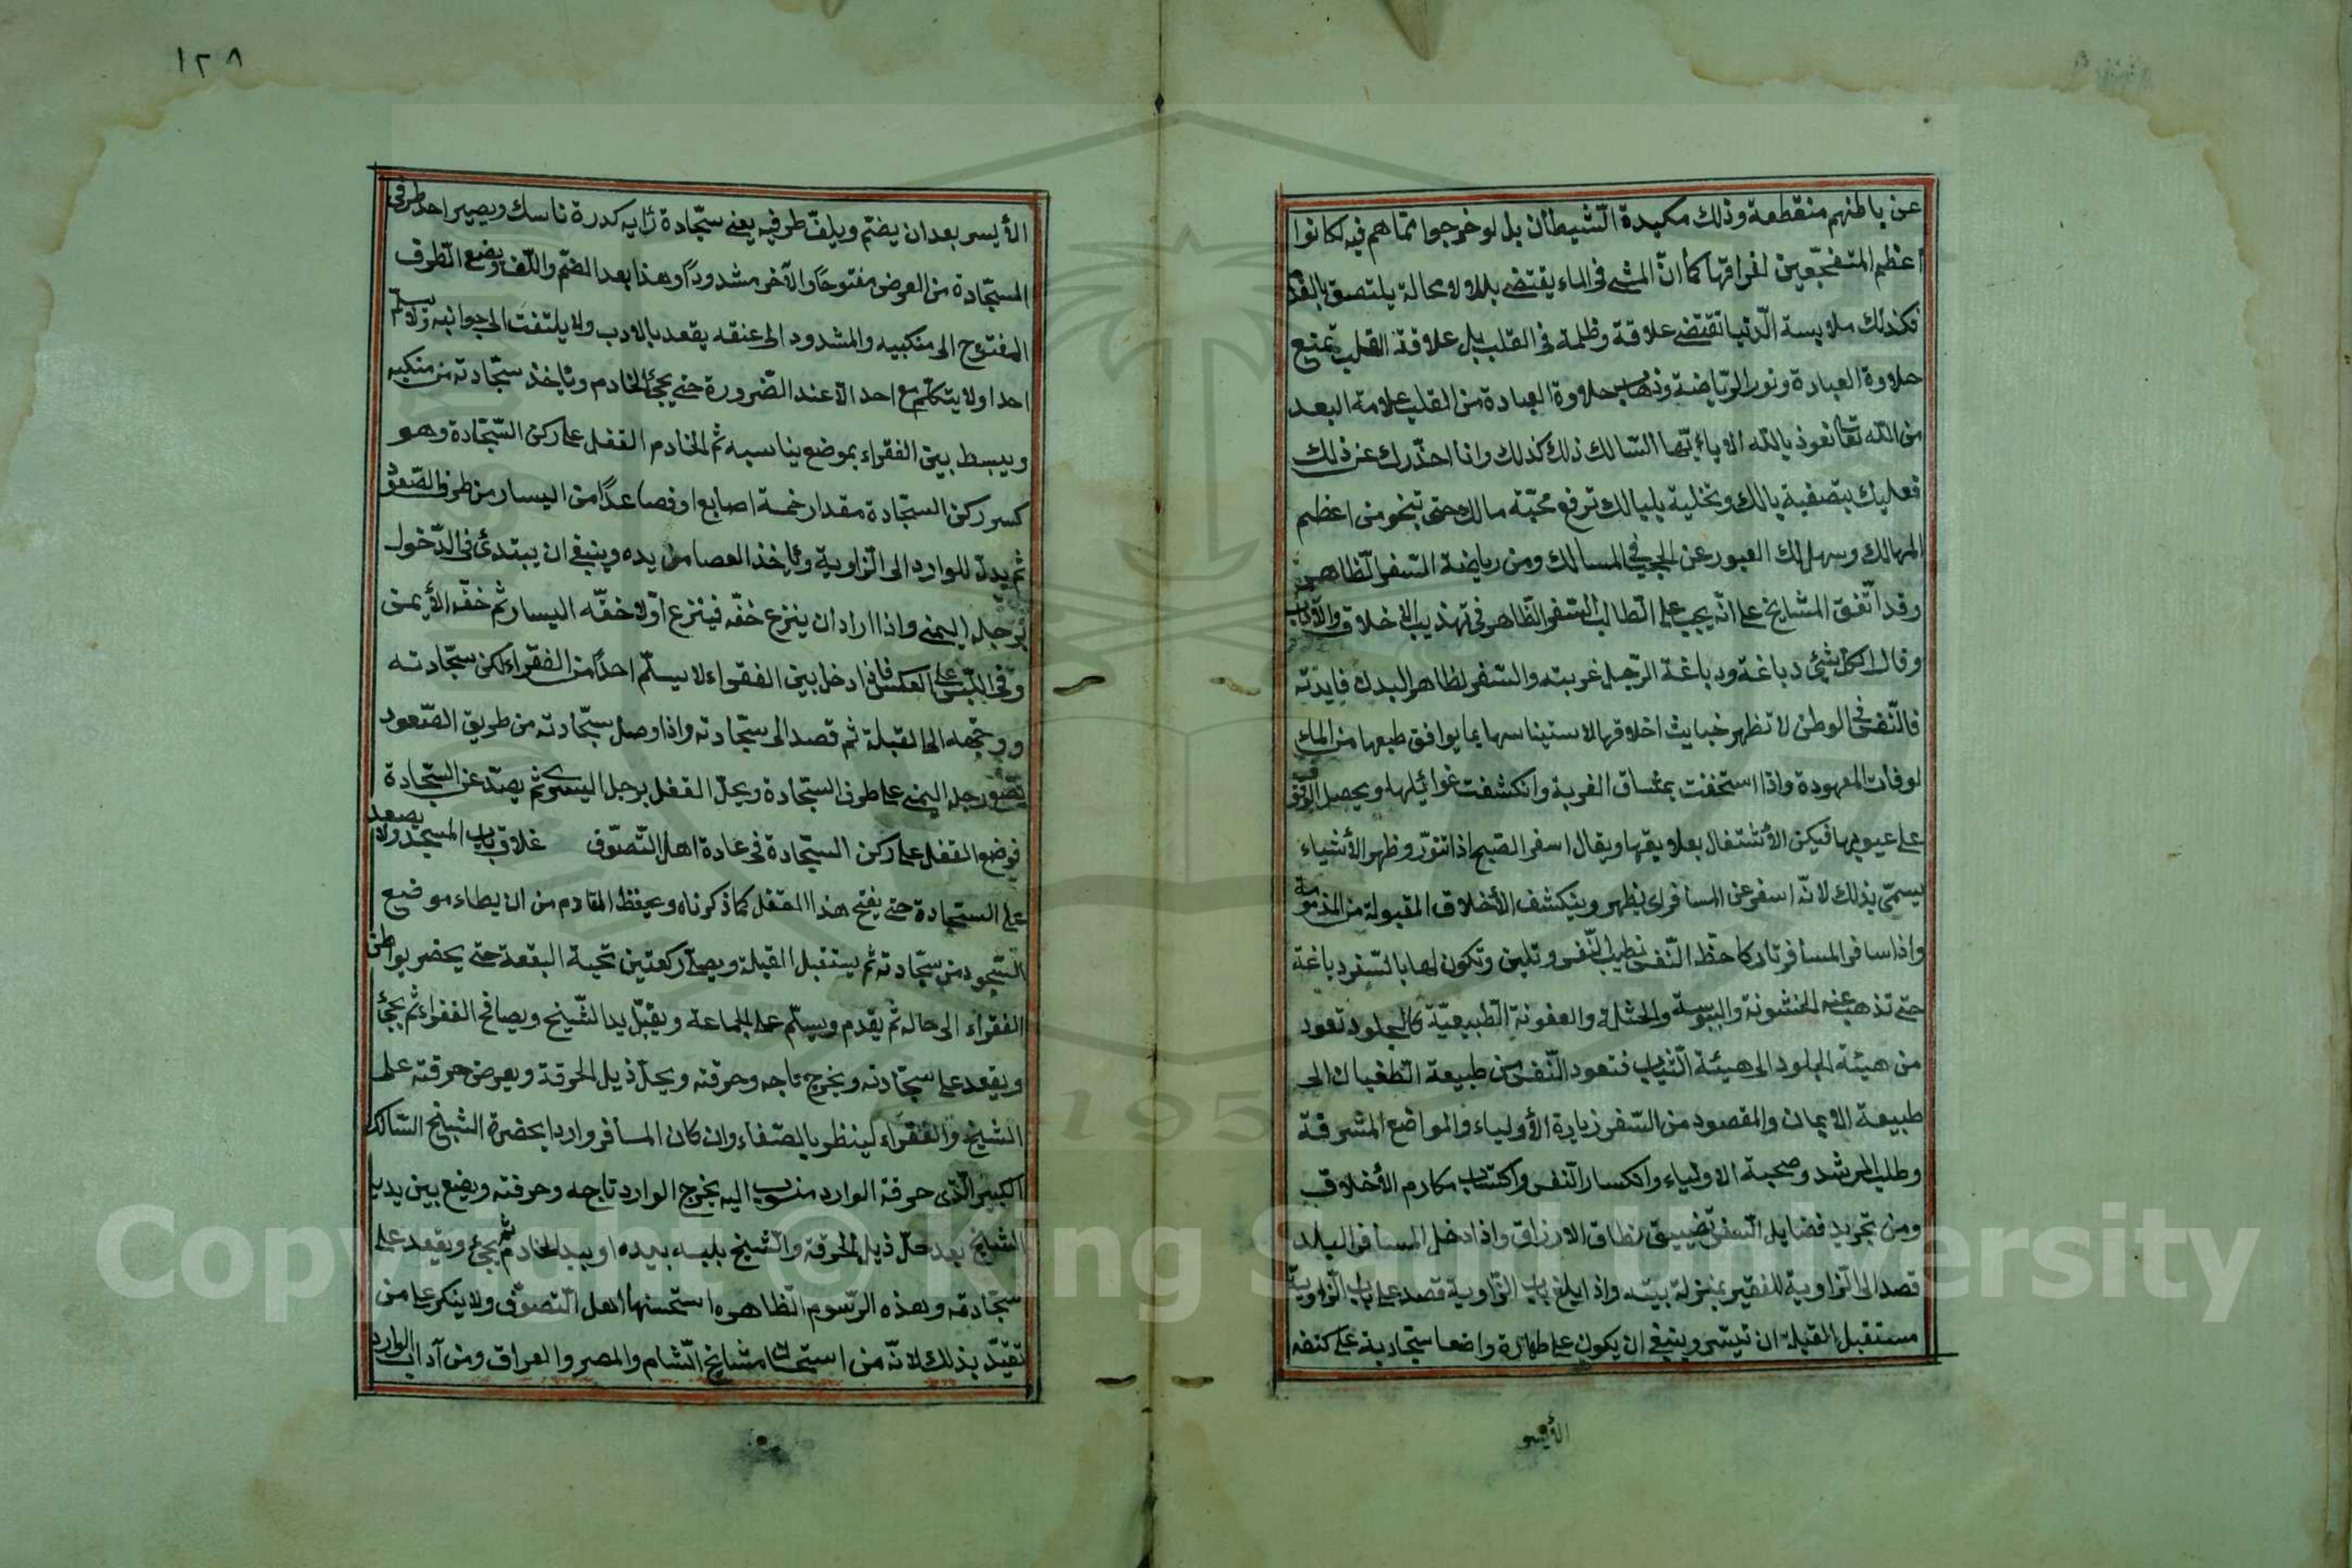 عن باطنهم منقطعة وذلك مكيدة الشيطان بل لو خرجوا مما هم فيه لكانوا
اعظم المتفجعين لفراقها كما ان المشى فى الماء يقتضى بللا ولا محالة يلتصق بالقدم
فكذلك ملابسة الدنيا تقتضى علاقة وظلمة فى القلب بل علاقة القلب تمنع
حلاوة العبادة ونور الرياضة وذهاب حلاوة العبادة من القلب علامة البعد
من الله تعا نعوذ بالله الا يا ايها السالك ذلك كذلك وانا احذرك عن ذلك
فعليك بتصفية بالك وتخلية بلبالك ترفع محبة مالك حتى تنجو من اعظم
المهالك وسهل لك العبور عن الحجب فى المسالك ومن رياضة السفر الظاهر
وقد اتفق المشايخ على انه يجب على الطالب السفر الظاهر فى تهذيب الاخلاق والآداب
وقال لكل شئ دباغة ودباغة الرجل غربته والسفر لظاهر البدن فايدته
فالنفس فى الوطن لا تظهر خبايث اخلاقها لاستيناسها بما يوافق طبعها من الما
لوفات المعهودة واذا استخفت بمشاق الغربة وانكشفت غوائيلها ويحصل الوقوف
على عيوبها فيكن الأشتغال بعلايقها ويقال اسفر الصبح اذا تنور وظهر الأشياء
يسمى بذلك لانه اسفر عن المسافر اى يظهر وينكشف الأخلاق المقبولة من المذمومة
واذا سافر المسافر تاركا حظ النفس تطيب النفس وتلين وتكون لها بالسفر دباغة
حتى تذهب عنه الخشونة واليبوسة والعفونة الطبيعية كالجلود تعود
من هيئة الجلود الى هيئة الثياب فتعود النفس من طبيعة الطغيان الى
طبيعة الايمان والمقصود من السفر زيارة الأولياء والمواضع المشرفة
وطلب المرشد وصحبة الاولياء وانكسار النفس واكتساب مكارم الأخلاق
ومن تجريد فضايل السفر تضييق نطاق الارزاق واذا دخل المسافر البلد
قصد الى الزاوية للفقير بمنزلة بيته واذا بلغ باب الزاوية قصد على باب الزاوية
مستقبل القبلة ان تيسر وينبغى ان يكون على طهارة واضعا سجادية على كتفه
الأيسر
١٢٨
الأيسر بعد ان يضم ويلف طرفيه يعنى سجادة ناسك ويصير احد طرفى
السجادة من العرض مفتوحا والآخر مشدودا وهذا بعد الضم واللف ويضع الطرف
المفتوح الى منكبيه والمشدود الى عنقه يقعد بالادب ولا يلتفت الى جوانبه ولا يسلم
احدا ولا يتكلم مع احد الا عند الضرورة حتى يجئ الخادم وياخذ سجادته من منكبه
ويبسط بين الفقراء بموضع يناسبه ثم الخادم القفل على ركن السجادة وهو
كسر ركن السجادة مقدار خمسة اصابع او فصاعدا من اليسار من طرف الصعود
ثم يدل للوارد الى الزاوية وياخذ العصا من يده وينبغى ان يبتدئ فى الدخول
برجله اليمنى واذا اراد ان ينزع خفه فينزع اولا خفه اليسار ثم خفه الأيمن
وفى اللبس على العكس فاذا دخل بين الفقراء لا يسلم احدا من الفقراء لكن سجادته
ووجهه الى القبلة ثم قصد الى سجادته واذا وصل سجادته من طريق الصعود
رجله اليمنى على طرف السجادة ويحل القفل برجل اليسرى ثم يصد عن السجادة
فوضع القفل على ركن السجادة فى عادة اهل التصوف غلاق باب المسجد ولا يصعد
على السجادة حتى يفتح هذا القفل كما ذكرناه ويحفظ القادم من ان يطاء موضع
السجود من سجادته ثم يستقبل القبلة ويصلى ركعتين تحية البقعة حتى يحضر بواطن
الفقراء الى حاله ثم يقدم ويسلم على الجماعة ويقبل يد الشيخ ويصافح الفقراء ثم يجئ
ويقعد على سجادته ويخرج تاجه وخرقته ويحل ذيل الخرقة ويعرض خرقته على
الشيخ والفقراء لينظر بالصفاء وان كان المسافر واردا بحضرة الشيخ السالك
الكبير الذى خرقة الوارد منسوب اليه يخرج الوارد تاجه وخرقته ويضع بين يدى
الشيخ بعد حل ذيل الخرقة والشيخ يلبسه بيده او بيد الخادم ثم يجئ ويقعد على
سجادته وهذه الرسوم الظاهره استحسنها اهل التصوف ولا ينكر على من
تقيد بذلك لانه من استحسان مشايخ الشام والمصر والعراق ومن آداب الوارد
Copyright © King Saud University
195